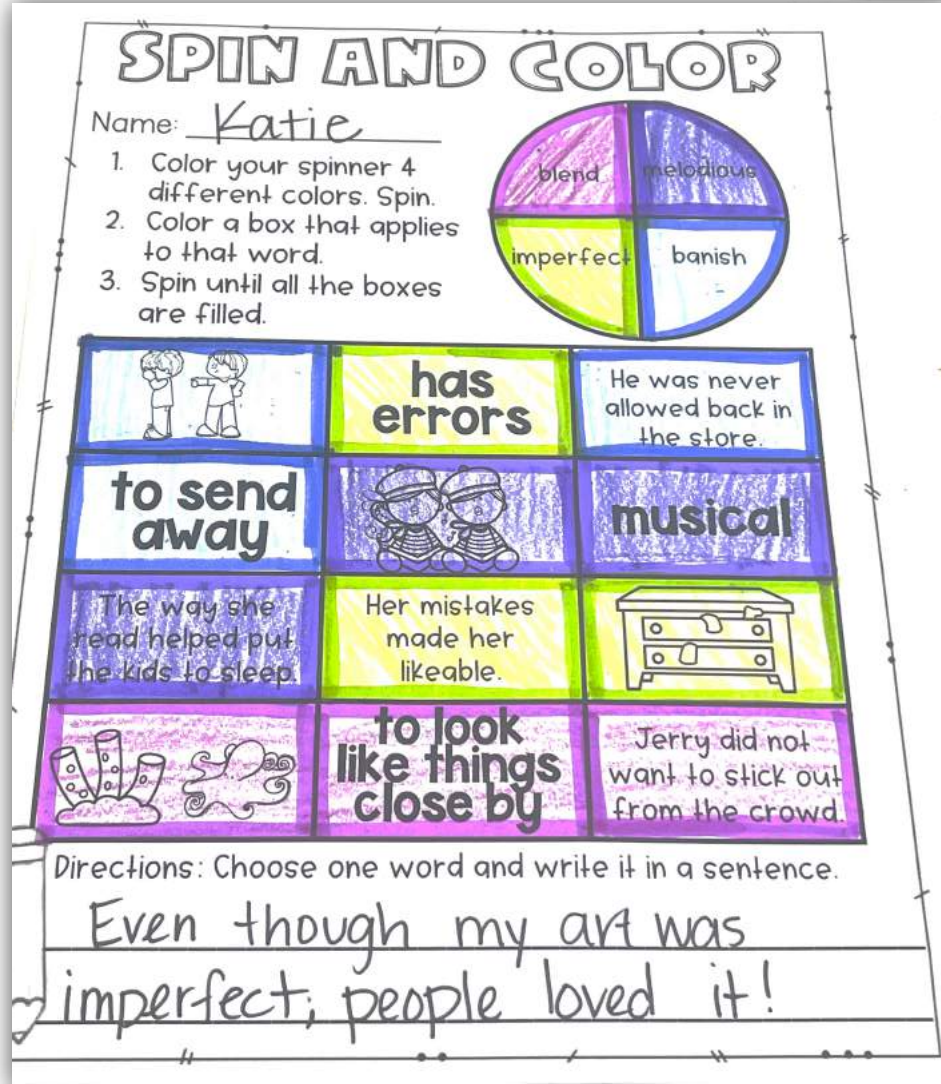 SPIN AND COLOR
Name: Katie
1. Color your spinner 4
different colors. Spin.
2. Color a box that applies
to that word.
3. Spin until all the boxes
are filled.
blend
melodious
imperfect
banish
has
errors
He was never
allowed back in
the store.
to send
away
musical
The way she
read helped put
the kids to sleep.
Her mistakes
made her
likeable.
to look
like things
close by
Jerry did not
want to stick out
from the crowd.
Directions: Choose one word and write it in a sentence.
Even though my art was
imperfect, people loved it!